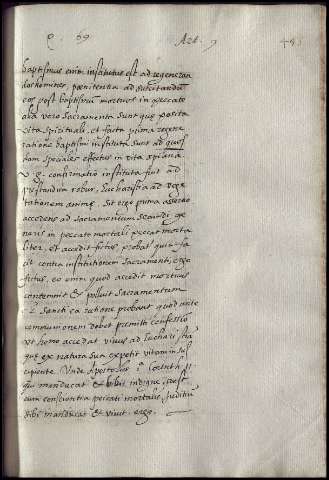 q. 69 Art. 9
baptismus enim institutus est ad regeneran
dos homines, pœnitentia ad suscitandū
eos post baptismū mortuos in peccato
alia vero sacramenta sunt que posita
vita spirituali, et facta prima regene
ratione baptismi instituta sunt ad quos
dam speciales effectus in vita
v. g. confirmatio instituta fuit ad
robur, Eucharistia ad vege
tationem animę. Sit ergo prima assertio
accedens ad sacramentum secundi ge
neris in peccato mortali peccat morta
liter, et accedit fictus probat quia fa
cit contra institutionem sacramenti, ergo
fictus, eo enim quod accedit mortuus
contemnit et polluit sacramentum
2. Sancti ea ratione probant quod ante
communionem debet premitti confessio
ut homo accedat vivus ad Eucharistiā
que ex natura sua expetit vitam in sus
cipiente. Unde Apostolus 1ª Corinth. 11
qui manducat et bibit indigne, est
cum conscientia peccati mortalis, Iuditiū
sibi manducat et ergo.